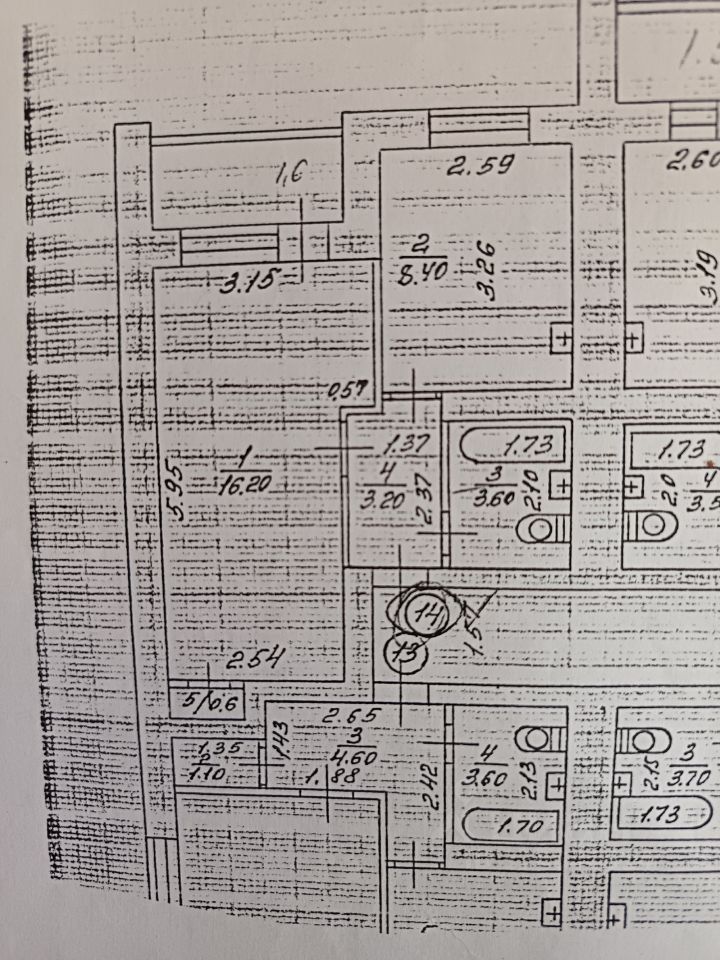 1,6
2.59
2.60
3.15
2
8.40
3.26
3.19
0.57
1
16.20
5.95
1.37
4
3.20
2.37
1.73
3
3.60
2.10
1.73
2.0
4
14
13
1.57
2.54
5/0.6
2.65
1.43
3
4.60
1.88
2.42
1.35
1.10
4
3.60
2.13
1.70
2.15
3
3.70
1.73